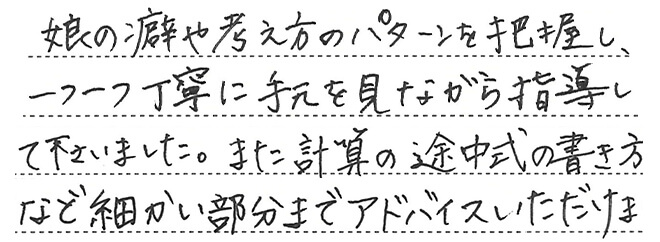 娘の癖や考え方のパターンを把握し、
一つ一つ丁寧に手元を見ながら指導し
て下さいました。また計算の途中式の書き方
など細かい部分までアドバイスいただけま